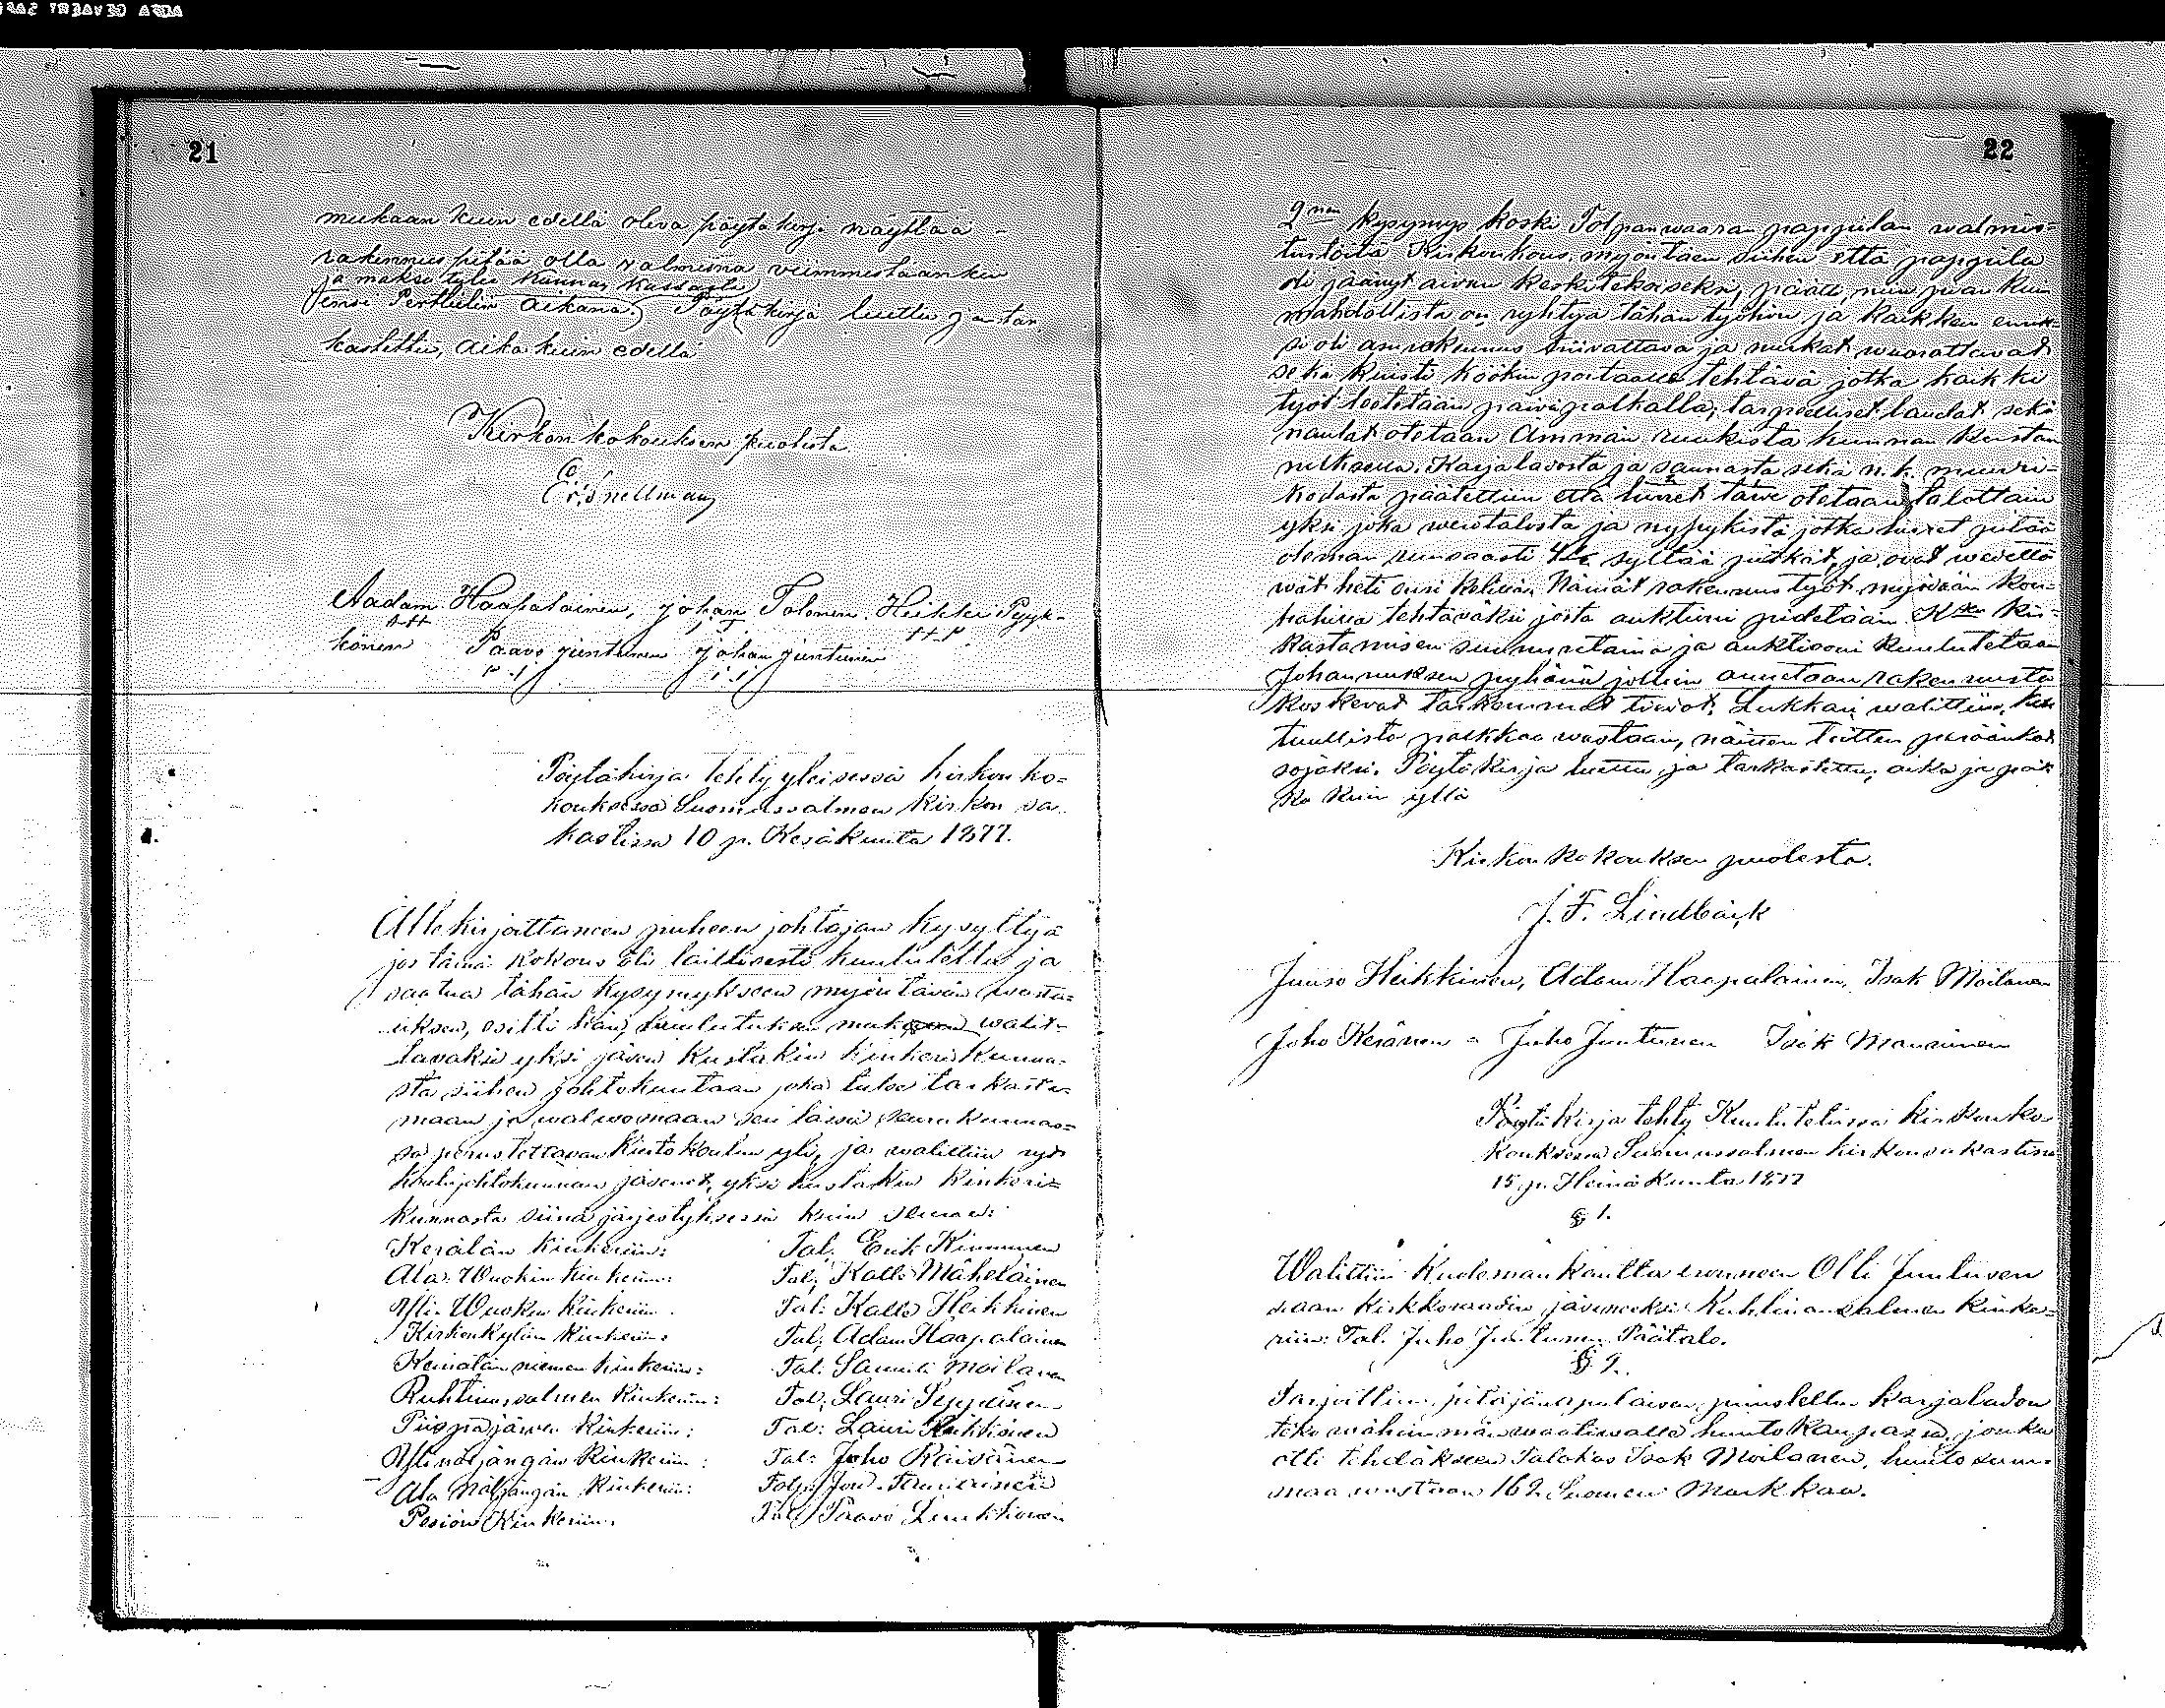 21
mukaan kuin edellä oleva pöytäkirja näyttää –
rakennus pitää olla valmiina viimmestäänkin
ja maksu tulee kunnan kassasta
ensi Perttulin aikana. Pöytäkirja luettu ja tar-
kastettu, aika kuin edellä
Kirkonkokouksen puolesta.
E. Snellman
Aadam Haapalainen, Johan Tolonen Heikki Pyyk-
könen Paavo Juntunen Johan Juntunen
Pöytäkirja tehty yleisessä kirkonko=
kouksessa Suomussalmen kirkon sa-
kastissa 10 p. Kesäkuuta 1877.
Allekirjoittaneen puheenjohtajan kysyttyä
jos tämä kokous oli laillisesti kuulutettu ja
saatua tähän kysymykseen myöntävän wasta=
uksen, esitti hän, kuulutuksen mukaan walit-
tavaksi yksi jäsen kustakin kinkerikunna-
sta siihen johtokuntaan joka tulee tarkasta-
maan ja walwomaan sen tässä seurakunnas=
sa perustettavan Kiertokoulun yli, ja walittiin nyt
koulujohtokunnan jäsenet, yksi kustakin kinkeri=
kunnasta siinä järjestyksessä kuin seuraa:
Kerälän kinkeriin: Tal. Erik Kinnunen
Ala-Wuokin kinkeriin: Tal. Kalle Mäheläinen
Yli-Wuokin kinkeriin. Tal: Kalle Heikkinen
Kirkonkylän kinkeriin: Tal. Adam Haapalainen
Kiannanniemen kinkeriin: Tal. Samuli Moilanen
Ruhtinansalmen kinkeriin: Tal. Lauri Seppänen
Piispajärven kinkeriin: Tal: Lauri
Yli näljängän kinkeriin: Tal: Juho Räisänen
Ala Näljängän kinkeriin: Tal.
Pesiön kinkeriin. Tal. Paavo
22
2nen kysymys koski Tolpanwaaran pappilan walmis=
tustöitä. Kirkonkous. myöntäen siihen että pappila
oli jäänyt aivan keskitekoiseksi, päätti, niin pian kuin
mahdollista on ryhtyä tähän työhön ja kaikkein ensik=
si oli asuinhuone tiivattava ja nurkat wuorattavat
sekä kuisti köökin portaalle tehtävä jotka kaikki
työt teetetään päiväpalkalla; tarpeelliset laudat sekä
naulat otetaan Ämmän ruukista kunnan kustan-
nuksella. Karjalavosta ja saunasta sekä n.k. muuri-
kodasta päätettiin että hirret tawe otetaan talottain
yksi joka werotalosta ja nypykistä jotka hirret pitää
oleman runsaasti 4½ syltää pitkät, ja ovat wedettä
wät heti ensi kelinä. Nämät rakennustyöt myödään kou-
pahissa tehtäväksi josta auktioni pidetään Kken kir-
kastamisen sunnuntaina ja auktiooni kuulutetaan
Johannuksen pyhänä jolloin annetaan rakennusta
koskevat tarkemmat tiedot. Lukkari walittiin, koh-
tuullista palkkaa wastaan, näitten töitten peräänkat-
sojaksi. Pöytäkirja luettu ja tarkastettu, aika ja paik-
ka kuin yllä
Kirkonkokouksen puolesta.
J. F. Lindbäck
Juuso Heikkinen, Adam Haapalainen, Isak Moilanen
Juho Keränen = Juho Juntunen Isak Manninen
Pöytäkirja tehty Kuulutetussa kirkonko-
kouksessa Suomussalmen kirkonsakastissa
15 p. Heinäkuuta 1877
§ 1.
Walittiin Kuoleman kautta eronneen Olli Juntusen
siaan kirkkoraadin jäseneeksi Ruhtinansalmen kinke=
riin: Tal. Juho Juntunen Päätalo.
§ 2.
Tarjottiin pitäjänapulaisen puustellin karjaladon
teko wähimmän waativalle huutokaupassa, jonka
otti tehdäkseen Talokas Isak Moilanen, huutosum-
maa wastaan 162 Suomen Markkaa.